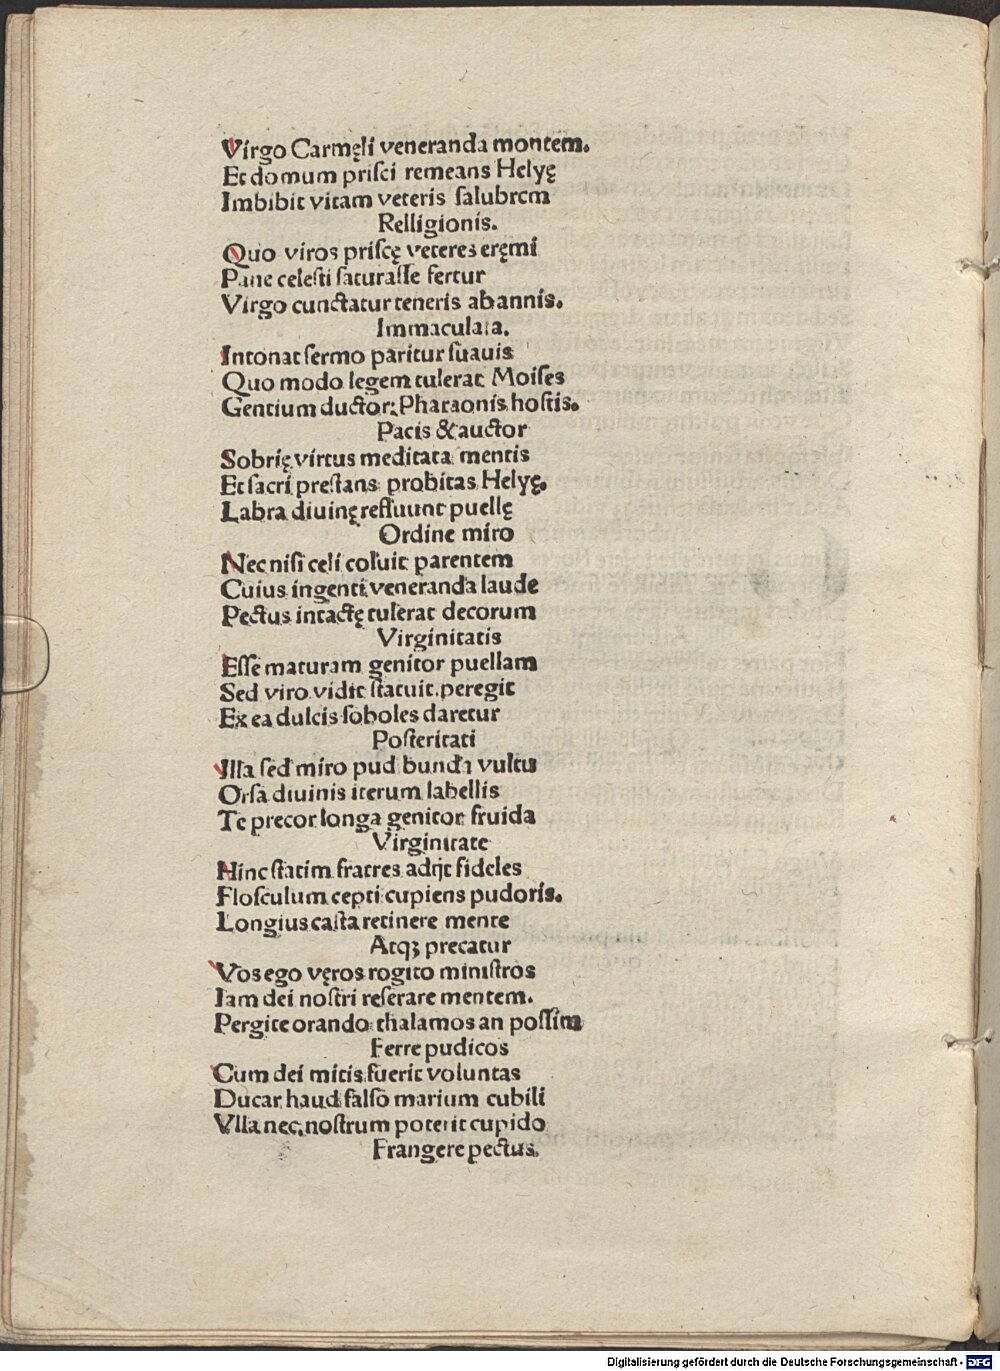 Virgo Carmęli veneranda montem.
Et domum prisci remeans Helyę
Imbibit vitam veteris salubrem
Relligionis.
Quo viros priscę veteres eręmi
Pane celesti saturasse fertur
Virgo cunctatur teneris ab annis.
Immaculata.
Intonat sermo paritur suauis
Quo modo legem tulerat Moises
Gentium ductor: Pharaonis hostis.
Pacis & auctor
Sobrię virtus meditata mentis
Et sacri prestans probitas Helyę.
Labra diuinę reffluunt puellę
Ordine miro
Nec nisi celi coluit parentem
Cuius ingenti veneranda laude
Pectus intactę tulerat decorum
Virginitatis
Esse maturam genitor puellam
Sed viro vidit statuit peregit
Ex ea dulcis soboles daretur
Posteritati
Illa sed miro pud bunda vultu
Orsa diuinis iterum labellis
Te precor longa genitor fruida
Virginitate
Hinc statim fratres adijt fideles
Flosculum cepti cupiens pudoris.
Longius casta retinere mente
Atqꝫ precatur
Vos ego vęros rogito ministros
Iam dei nostri reserare mentem.
Pergite orando thalamos an possim
Ferre pudicos
Cum dei mitis fuerit voluntas
Ducar haud falso marium cubili
Vlla nec nostrum poterit cupido
Frangere pectus.
Digitalisierung gefördert durch die Deutsche Forschungsgemeinschaft - DFG